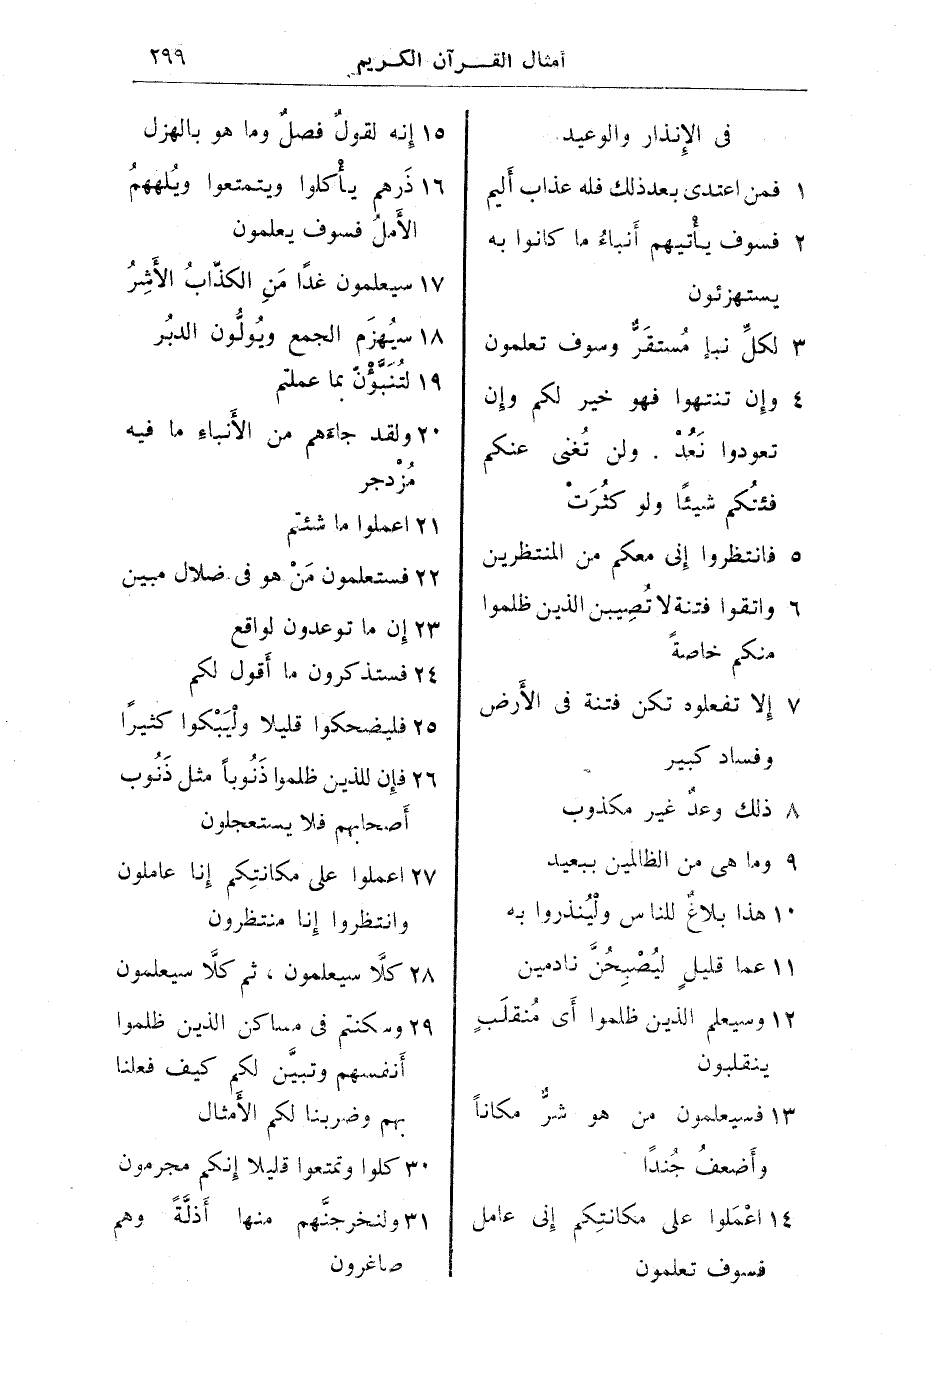 أمثال القرآن الكريم ٢٩٩
فى الإنذار والوعيد
١ فمن اعتدى بعد ذلك فله عذاب أليم
٢ فسوف يأتيهم أنباءُ ما كانوا به
يستهزئون
٣ لكلِّ نبإ مُستقَرٌّ وسوف تعلمون
٤ وإن تنتهوا فهو خير لكم وإن
تعودوا نَعُدْ . ولن تُغنى عنكم
فئتُكم شيئًا ولو كثُرَتْ
٥ فانتظروا إنى معكم من المنتظرين
٦ واتقوا فتنة لا تُصِيبن الذين ظلموا
منكم خاصةً
٧ إلا تفعلوه تكن فتنة فى الأَرض
وفساد كبير
٨ ذلك وعدٌ غير مكذوب
٩ وما هى من الظالمين ببعيد
١٠ هذا بلاغٌ للناس ولْيُنذروا به
١١ عما قليلٍ ليُصْبِحُنَّ نادمين
١٢ وسيعلم الذين ظلموا أى مُنقلَبٍ
ينقلبون
١٣ فسيعلمون من هو شرٌّ مكاناً
وأَضعفُ جُندًا
١٤ اعْمَلوا على مكانتِكم إنى عامل
فسوف تعلمون
١٥ إنه لقولٌ فصلٌ وما هو بالهزل
١٦ ذَرهم يأْكلوا ويتمتعوا ويُلههمُ
الأَملُ فسوف يعلمون
١٧ سيعلمون غدًا مَنِ الكذّابُ الأَشِرُ
١٨ سيُهزَم الجمع ويُولُّون الدبُر
١٩ لتُنَبَّؤُنَّ بما عملتم
٢٠ ولقد جاءَهم من الأَنباءِ ما فيه
مُزْدجر
٢١ اعملوا ما شئتم
٢٢ فستعلمون مَنْ هو فى ضلال مبين
٢٣ إن ما توعدون لواقع
٢٤ فستذكرون ما أَقول لكم
٢٥ فليضحكوا قليلا ولْيَبْكوا كثيرًا
٢٦ فإن للذين ظلموا ذَنُوباً مثل ذَنُوب
أَصحابهم فلا يستعجلون
٢٧ اعملوا على مكانتِكم إنا عاملون
وانتظروا إنا منتظرون
٢٨ كلَّا سيعلمون ، ثم كلَّا سيعلمون
٢٩ وسكنتم فى مساكن الذين ظلموا
أَنفسهم وتبيَّن لكم كيف فعلنا
بهم وضربنا لكم الأَمثال
٣٠ كلوا وتمتعوا قليلا إنكم مجرمون
٣١ ولنخرجنَّهم منها أَذلَّةً وهم
صاغرون